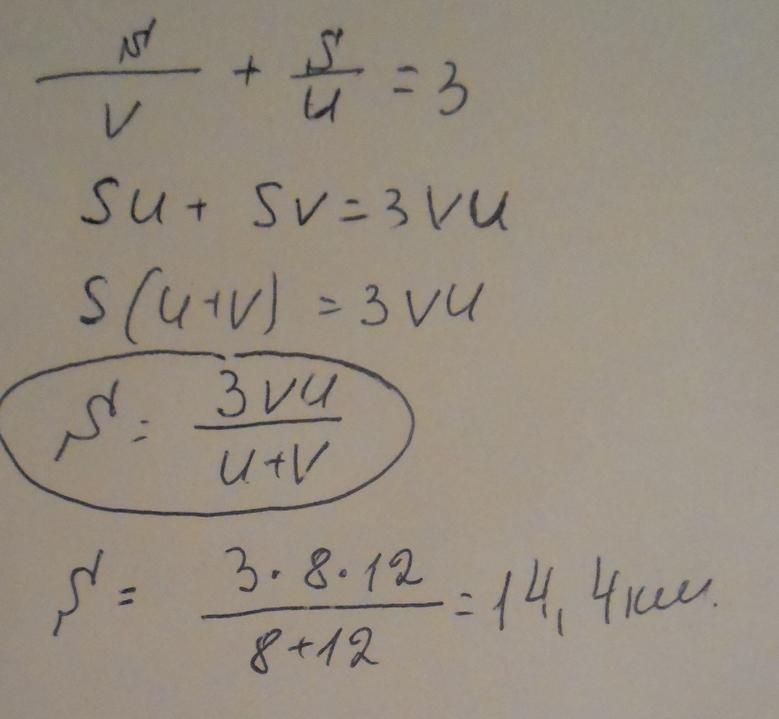 S/V + S/U = 3
SU + SV = 3VU
S(U+V) = 3VU
S = 3VU/U+V
S = 3·8·12/8+12 = 14,4 км.